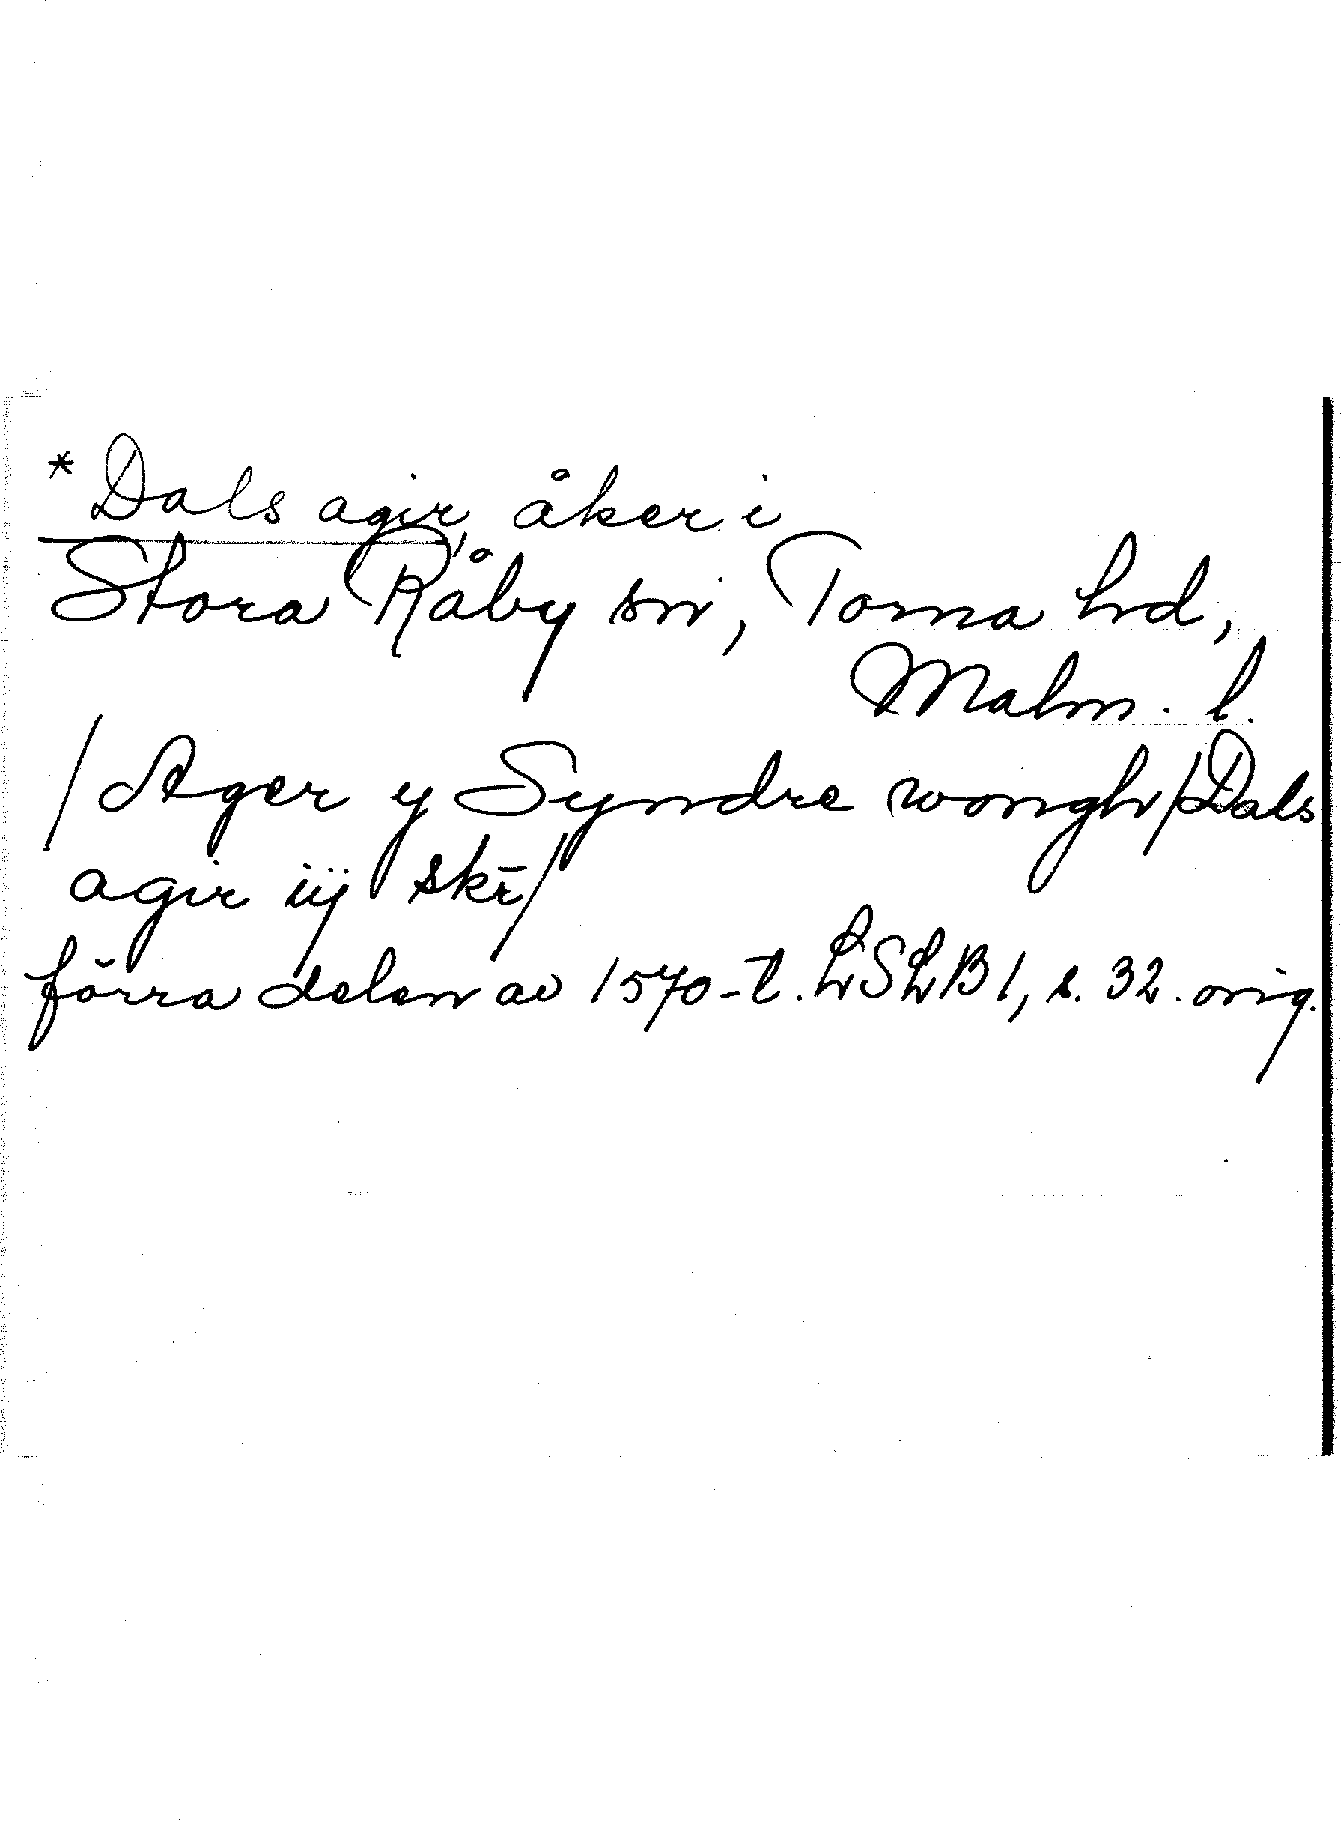 * Dals agir, åker i
Stora Råby sn, Torna hd,
Malm. l.
/Ager y Syndre wongh/Dals
agir iij skr̄/
förra delen av 1570-t. LSLB 1, s. 32. orig.